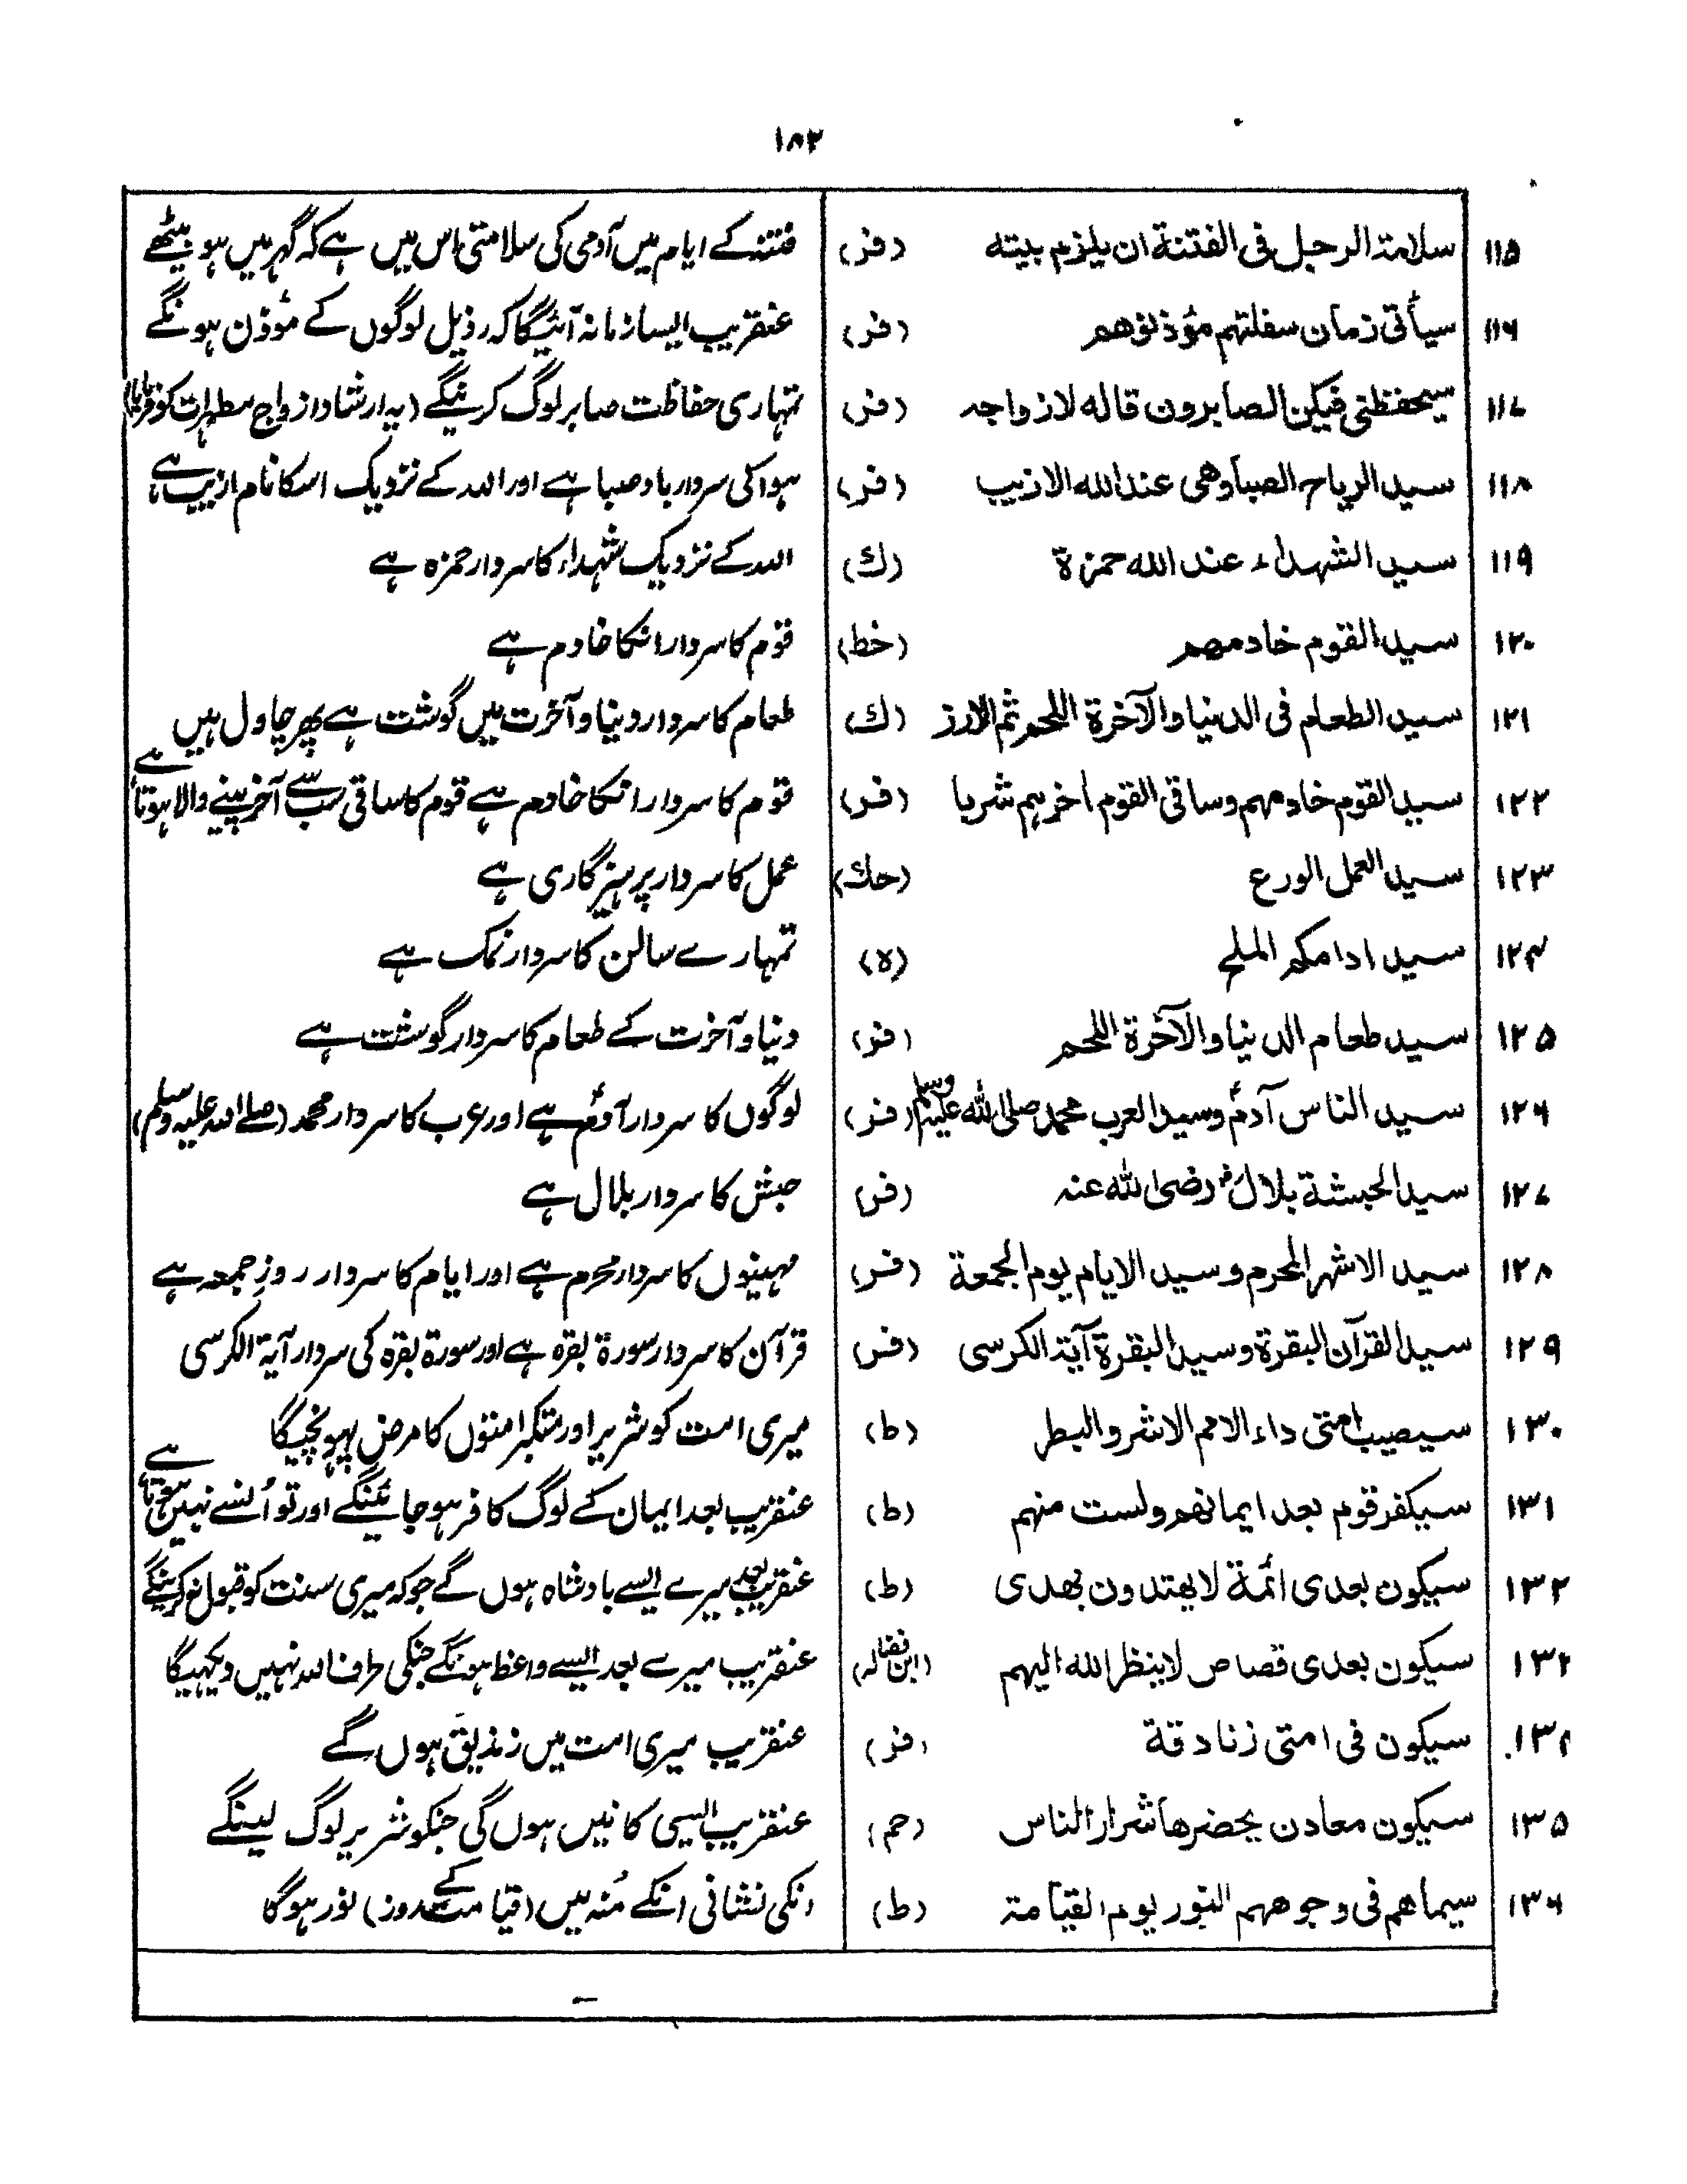 ۱۸۲
۱۱۵ سلامة الرجل فی الفتنة ان یلزم بیته (فر) فتنہ کے ایام میں آدمی کی سلامتی اس میں ہے کہ گہر میں ہو بیٹھے
۱۱۶ سیأتی زمان سفلتهم مؤذنوهم (فر) عنقریب ایسا زمانہ آئیگا کہ رذیل لوگوں کے مؤذن ہونگے
۱۱۷ سیحفظنی فیکن الصابرون قاله لازواجه (فر) تمہاری حفاظت صابر لوگ کرینگے (یہ ارشاد ازواج مطہرات کو فرمایا)
۱۱۸ سید الریاح الصبا وهی عند الله الازیب (فر) ہوا کی سردار باد صبا ہے اور اللہ کے نزدیک اسکا نام ازیب ہے
۱۱۹ سید الشهداء عند الله حمزة (ك) اللہ کے نزدیک شہداء کا سردار حمزہ ہے
۱۲۰ سید القوم خادمهم (خط) قوم کا سردار انکا خادم ہے
۱۲۱ سید الطعام فی الدنیا والآخرة اللحم ثم الارز (ك) طعام کا سردار دنیا و آخرت میں گوشت ہے پھر چاول ہیں
۱۲۲ سید القوم خادمهم وساقی القوم اخرهم شربا (فر) قوم کا سردار انکا خادم ہے قوم کا ساقی سب سے آخر پینے والا ہوتا ہے
۱۲۳ سید العمل الورع (حك) عمل کا سردار پرہیزگاری ہے
۱۲۴ سید ادامکم الملح (ه) تمہارے سالن کا سردار نمک ہے
۱۲۵ سید طعام الدنیا والآخرة اللحم (فر) دنیا و آخرت کے طعام کا سردار گوشت ہے
۱۲۶ سید الناس آدمؑ وسید العرب محمد صلی الله علیہ وسلم (فر) لوگوں کا سردار آدمؑ ہے اور عرب کا سردار محمد (صلے اللہ علیہ وسلم)
۱۲۷ سید الحبشة بلالؓ رضی الله عنہ (فر) حبش کا سردار بلال ہے
۱۲۸ سید الاشهر المحرم وسید الایام یوم الجمعة (فر) مہینوں کا سردار محرم ہے اور ایام کا سردار روزِ جمعہ ہے
۱۲۹ سید القرآن البقرة وسید البقرة آیة الکرسی (فر) قرآن کا سردار سورۃ بقرہ ہے اور سورۃ بقرہ کی سردار آیۃ الکرسی
۱۳۰ سیصیب امتی داء الامم الاشر والبطر (ط) میری امت کو شریر اور متکبر امتوں کا مرض پہونچیگا
۱۳۱ سیکفر قوم بعد ایمانهم ولست منهم (ط) عنقریب بعد ایمان کے لوگ کافر ہو جائینگے اور تو اُنسے نہیں ہوتا ہے
۱۳۲ سیکون بعدی ائمة لا یهتدون بهدی (ط) عنقریب بعد میرے ایسے بادشاہ ہوں گے جو کہ میری سنت کو قبول نہ کرینگے
۱۳۳ سیکون بعدی قصاص لا ینظر الله الیهم (ابن فضالہ) عنقریب میرے بعد ایسے واعظ ہونگے جنکی طرف اللہ نہیں دیکہیگا
۱۳۴ سیکون فی امتی زنادقة (فر) عنقریب میری امت میں زندیق ہوں گے
۱۳۵ سیکون معادن یحضرها شرار الناس (حم) عنقریب ایسی کانیں ہوں گی جنکو شریر لوگ لینگے
۱۳۶ سیماهم فی وجوههم النور یوم القیامة (ط) انکی نشانی انکے مُنہ میں (قیامت کے روز) نور ہوگا